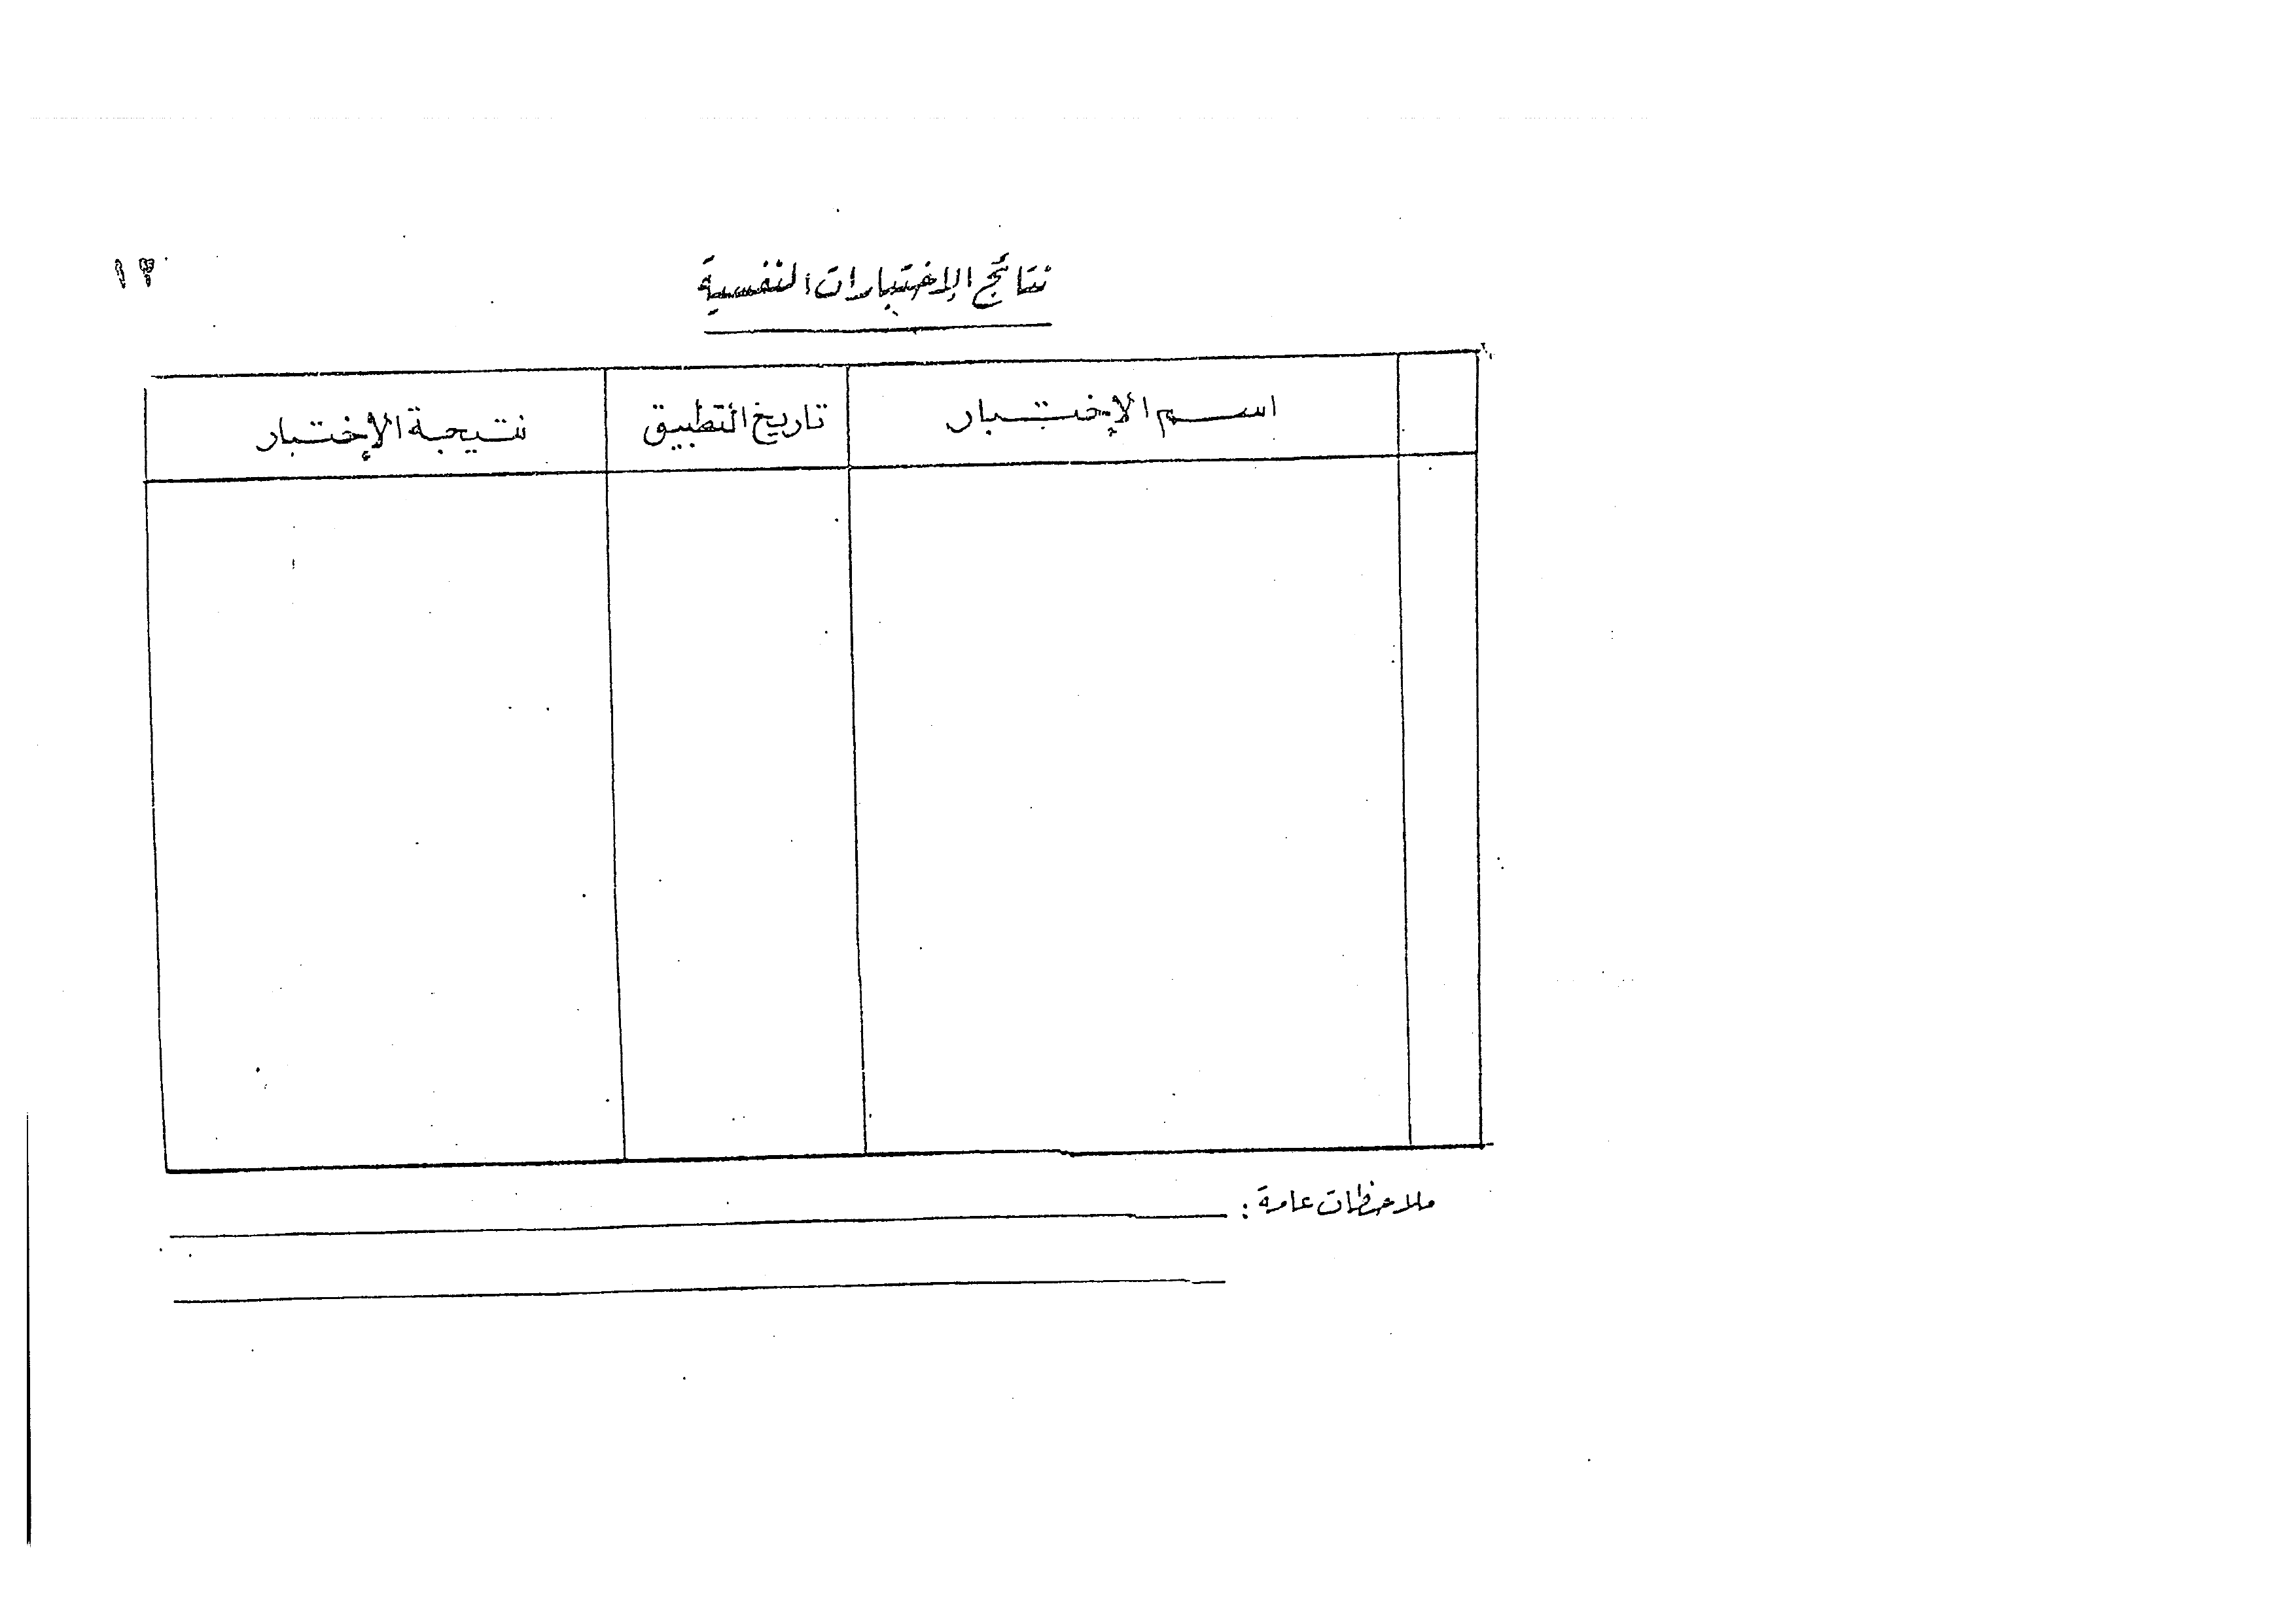 نتائج الإختبارات النفسية
١٣
اسم الإختبار تاريخ التطبيق نتيجة الإختبار
ملاحظات عامة :